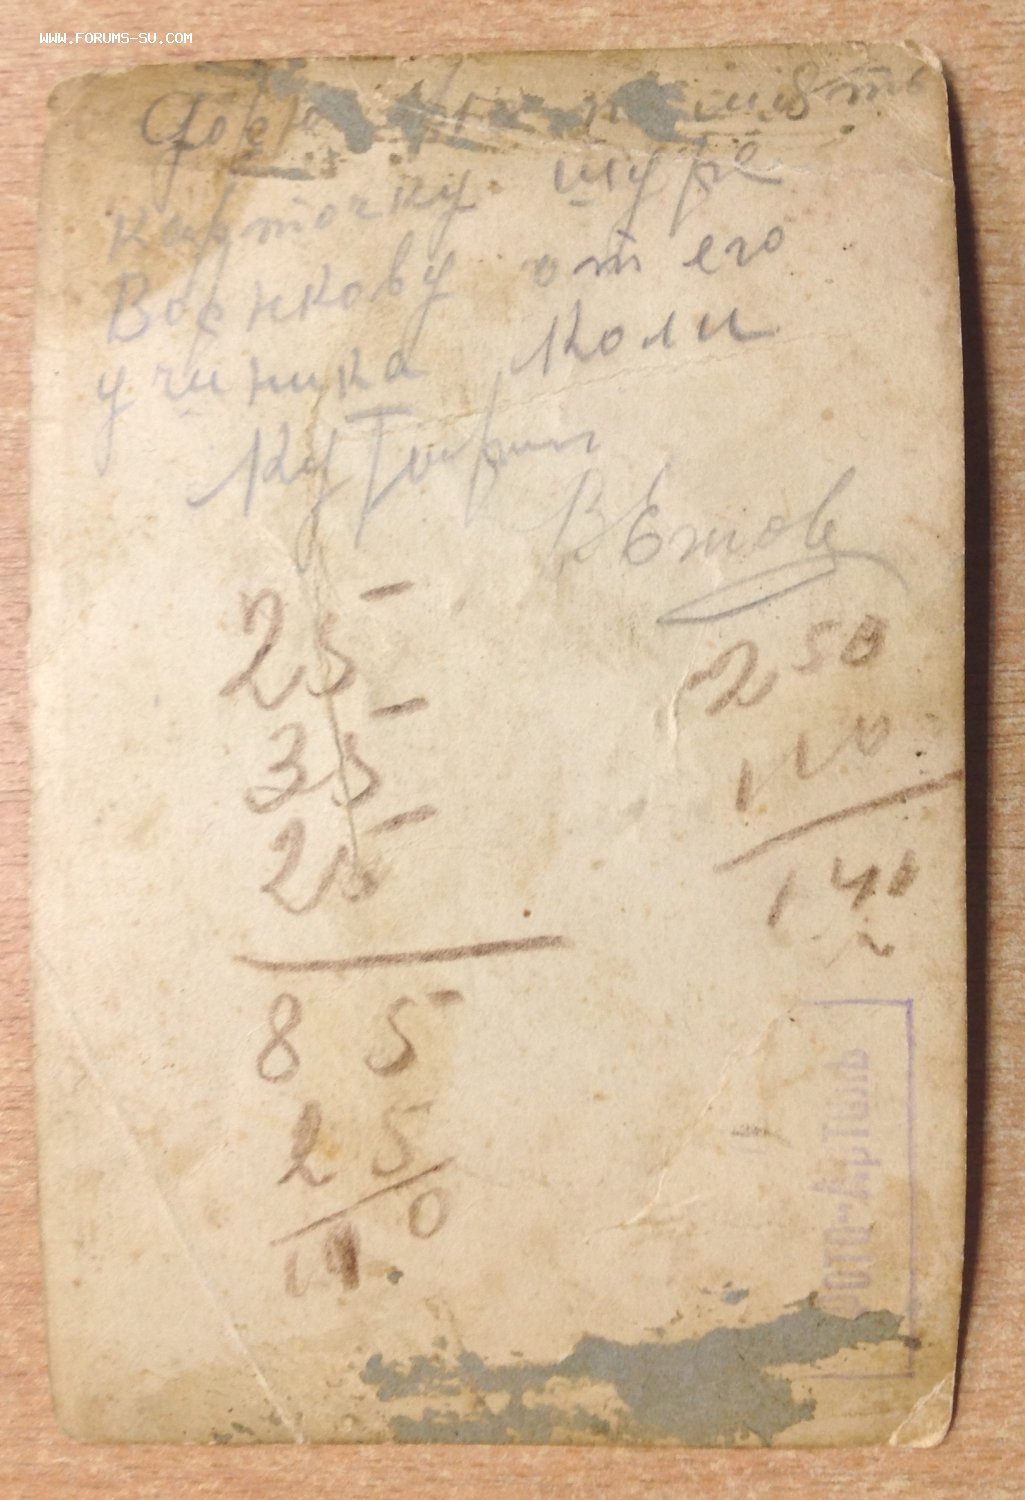 WWW.FORUMS-SU.COM
на память
карточку шуре
Воєнкову от его
учиника Коли
25
35
25
85
25
110
250
110
140
ФОТО-АРТЕЛЬ